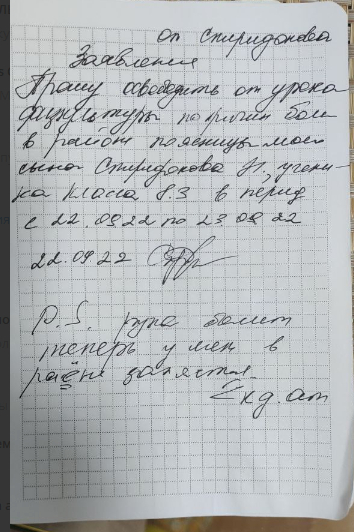 от Спиридонова
Заявление
Прошу освободить от урока
физкультуры по причин боли
в район поясницы моего
сына Спиридонова Н. учени-
ка класса 8.3 в период
с 22.09.22 по 23.09.22
22.09.22
P.S. рука болит
теперь у мен в
раёне запястья